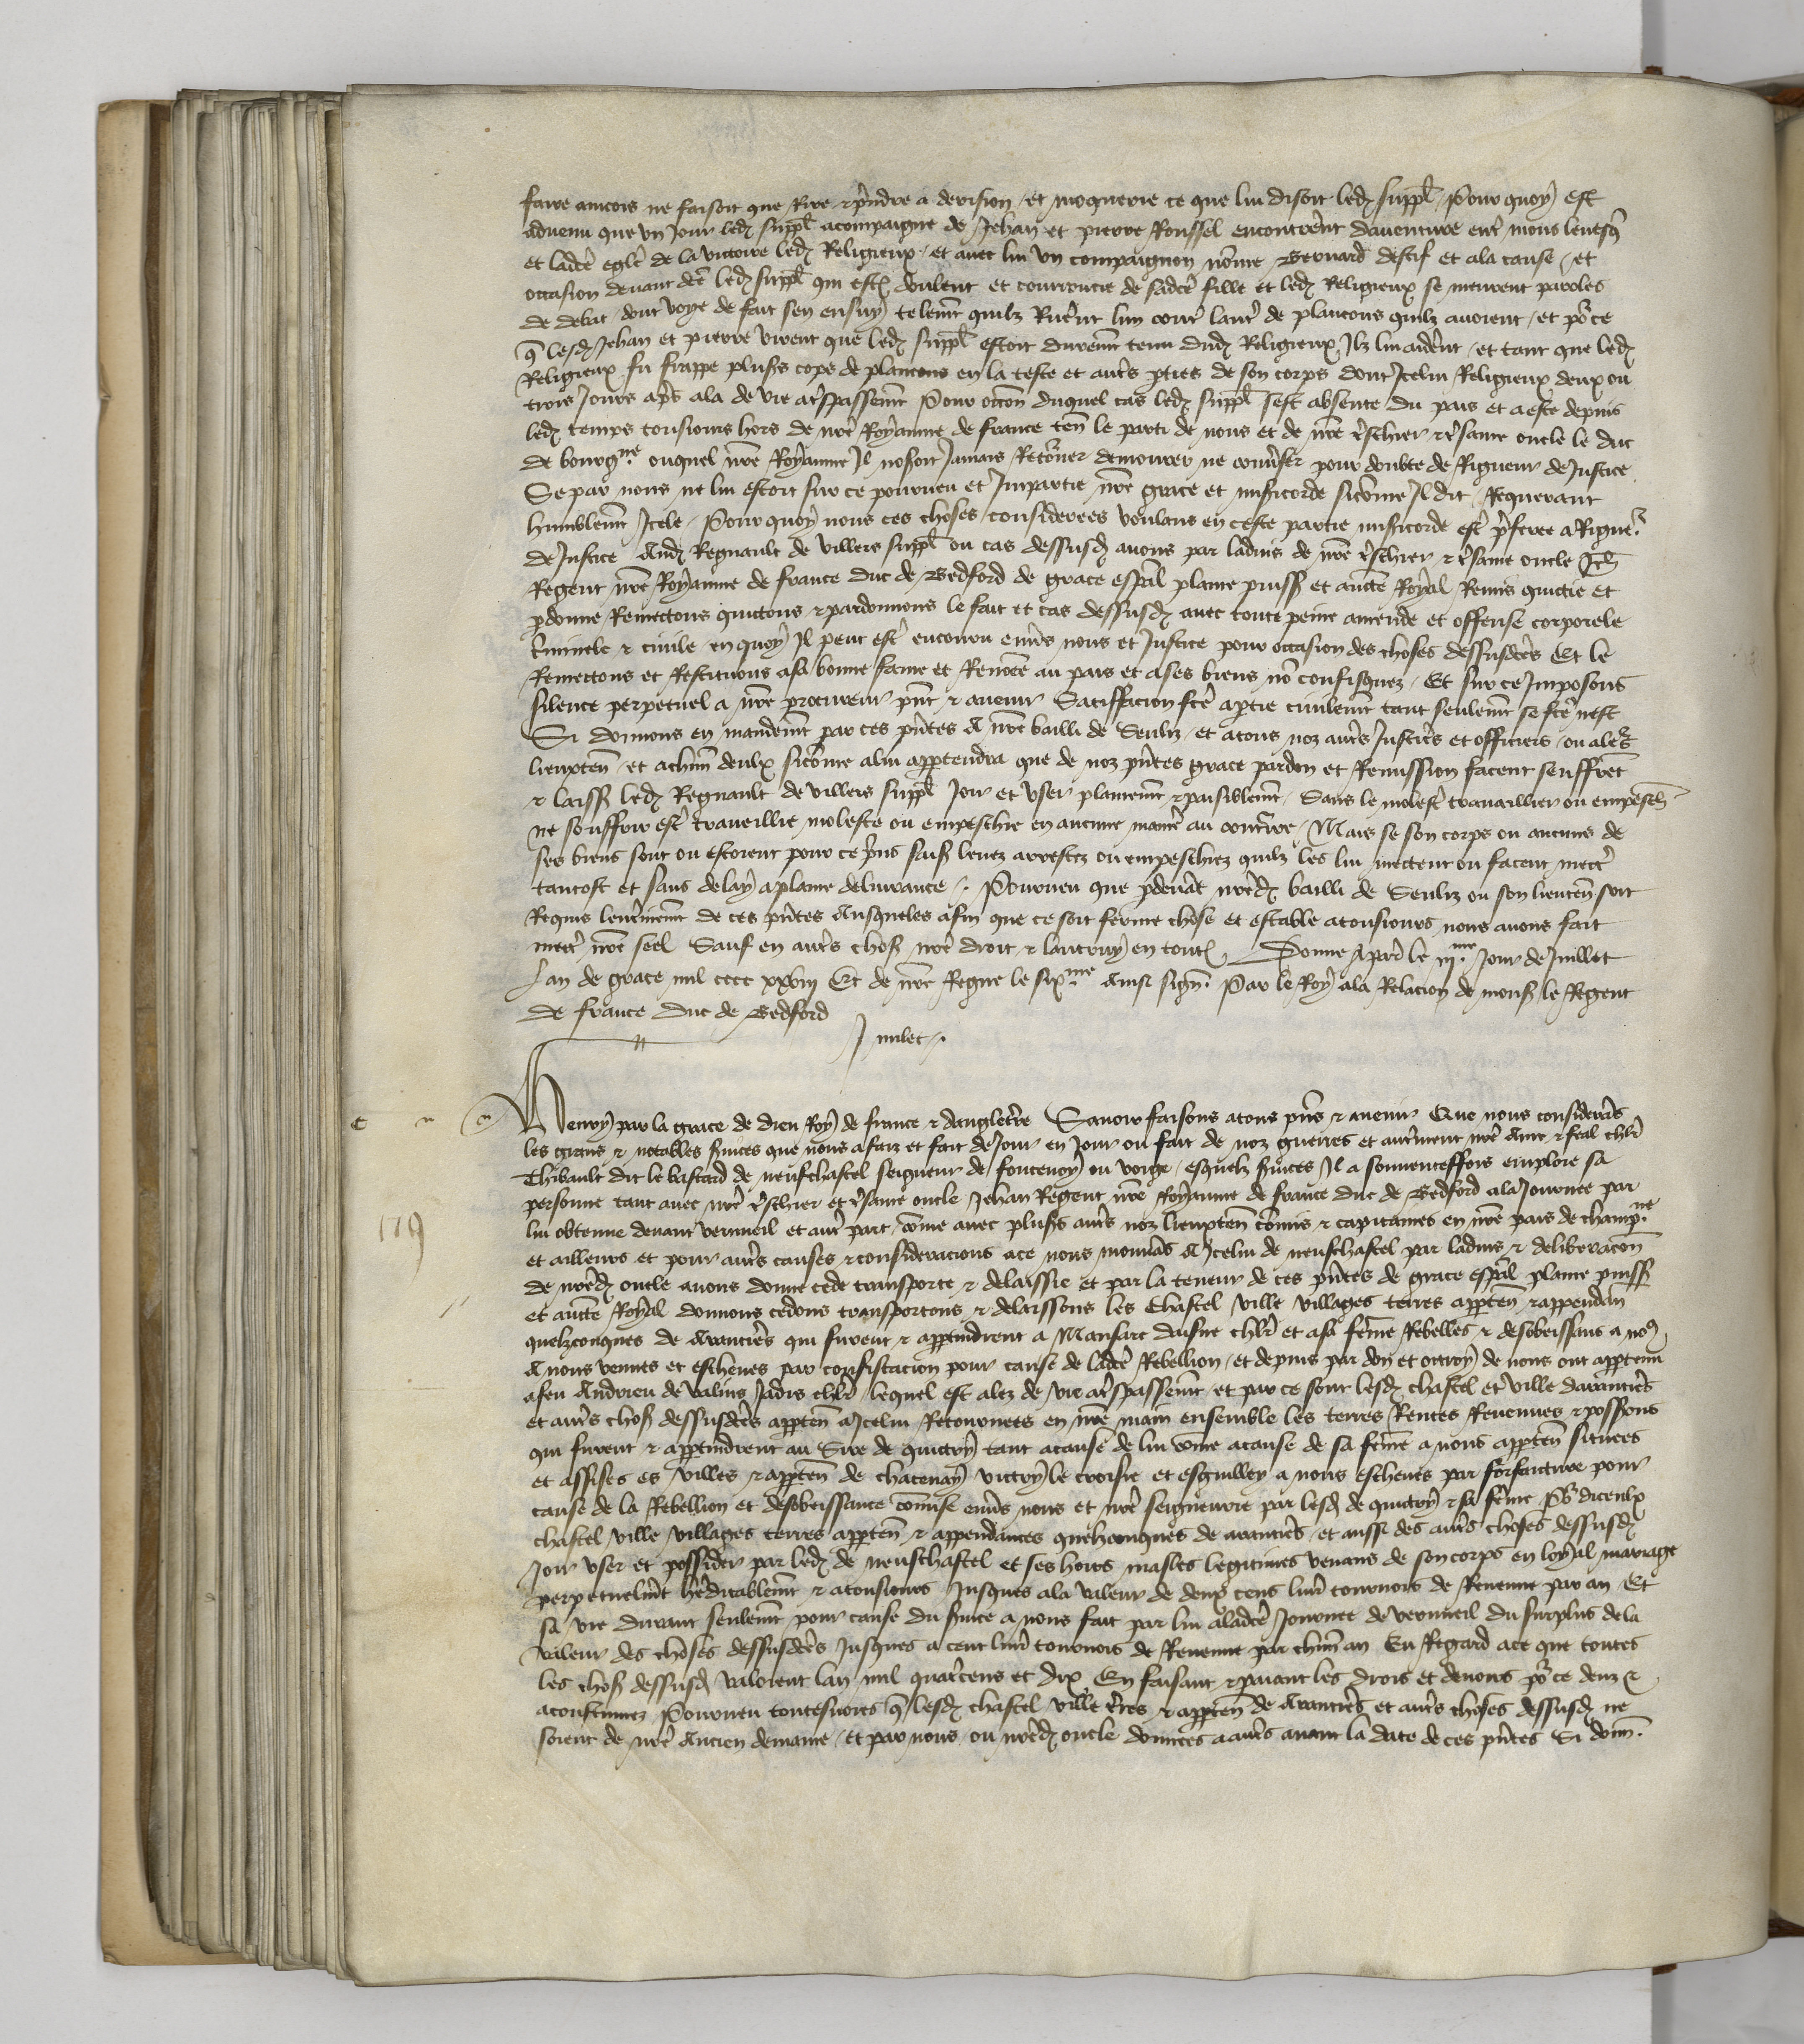 faire aincois ne faisoit que Rire & p̃ndre a derision / et moquerie ce que lui disoit led̃ supp̃l / Pour quoy est
advenu que un Jour led̃ supp̃l acompaigne de Jehan et pierre Roussel encontrẽrt daventure entr̃ mons levesq̃
et ladc̃e eglĩe de la victoire led̃ Religieux / et avec lui un compaignon nõme Bernard destif et ala cause / et
occasion devant dc̃e led̃ supp̃l qui estoit dolent et courroucie de sadc̃e fille et led̃ Religieux se meurent paroles
de debat dont voye de fait sen ensuy telemẽt quilz Ruerẽt lun contr̃ lautr̃ de plancons quilz avoient / et po^r ce
q̃ lesd̃ Jehan et pierre virent que led̃ supp̃l estoit duremẽt tenu dud̃ Religieux Ilz lui aiderẽt / et tant que led̃
Religieux fu frappe plus̃s cops de plancons en la teste et autr̃s p̃ties de son corps dont Icelui Religieux deux ou
trois Jours apr̃s ala de vie a tr̃spassemẽt Pour occõn duquel cas led̃ supp̃l sest absente du pais et a este depuis
led̃ temps tousiours hors de nr̃e Royaume de france teñ le parti de nous et de nr̃e tr̃schier & tr̃same oncle le duc
de bourg^ne ouquel nr̃e Royaume Il nosoit Jamais Reto^rner demourer ne conv̾ser pour doubte de Rigueur de Justice
Se par nous ne lui estoit sur ce pourveu et Impartie nr̃e grace et misẽricorde sicõme Il dit Requerant
humblemẽt Icele / Pour quoy nous ces choses considerees voulans en ceste partie misẽricorde estr̃ pr̃feree a Rigue^r
de Justice Aud̃ Regnault de villers supp̃l ou cas dessusd̃ avons par ladvis de nr̃e tr̃schier & tr̃same oncle Jeh̃
Regent nr̃e Royaume de france duc de Bedford de grace esp̃al plaine puiss̃ et auct̃e Royal Remis quictie et
p̃donne Remectons quictons & pardonnons le fait et cas dessusd̃ avec toute peine amende et offense corporele
cr̃iminele & civile en quoy Il peut estr̃ encouru env̾s nous et Justice pour occasion des choses dessusdc̃es Et le
Remectons et Restituons a sa bonne fame et Renõmee au pais et a ses biens nõ confisquez / Et sur ce Imposons
silence perpetuel a nr̃e procureur p̃nt & avenir Satiffacion fc̃e a p̃tie civilemẽt tant seulemẽt se fc̃e nest
Si donnons en mandemẽt par ces p̃ntes A nr̃e bailli de Senliz / et a tous noz autr̃s Justicr̃s et officiers / ou a le^rs
lieuxteñ / et a chũn deulx sicõme a lui appartendra que de noz p̃ntes grace pardon et Remission facent seuffrẽt
& laiss̃ led̃ Regnault de villers supp̃l Joir et user plainemẽt & paisiblemẽt / Sans le molestr̃ travaillier ou empesch̃
ne souffrir estr̃ traveillie moleste ou empeschie en aucune manier̃ au contr̃ire / Mais se son corps ou aucuns de
ses biens sont ou estoient pour ce pr̃ns saisi levez arrestez ou empeschiez quilz les lui mettent ou facent mectr̃
tantost et sans delay a plaine delivrance / Pourveu que p̃devãt nr̃ed̃ bailli de Senliz ou son lieuteñ soit
Requis lenterinemẽt de ces p̃ntes Ausqueles afin que ce soit ferme chose et estable a tousiours nous avons fait
mectr̃ nr̃e seel Sauf en autr̃s chos̃ nr̃e droit & lautruy en toutes / Donne a paris le iii^me Jour de Juillet
Lan de grace mil cccc xxviii Et de nr̃e Regne le six^me Ainsi signe. Par le Roy a la Relacion de mons̃ le Regent
de france duc de Bedford
J milet /.
Henry par la grace de dieu Roy de france & dangleterr̃e Savoir faisons a tous p̃ns & avenir Que nous considerãs
les grans & notables s̃vices que nous a faiz et fait de Jour en Jour ou fait de noz guerres et autrẽment nr̃e ame & feal chl̃r
Thibault dit le bastard de neufchastel seigneur de fontenoy ou voige / esquelz s̃vices Il a souventeffois emploie sa
personne tant avec nr̃e tr̃schier et tr̃same oncle Jehan Regent nr̃e Royaume de france duc de Bedford a la Journee par
lui obtenue devant verneuil et autr̃ part / cõme avec plus̃s autr̃s noz lieuxteñ cõmis & capitaines en nr̃e pais de champ^ne
et ailleurs et pour autr̃s causes & consideracions a ce nous mouvãs A Icelui de neufchastel par ladvis & deliberacõn
de nr̃ed̃ oncle avons donne cede transporte & delaissie et par la teneur de ces p̃ntes de grace esp̃al plaine puiss̃
et auct̃e Royal donnons cedons transportons & delaissons les Chastel ville villages terres apparteñ & appendañ
quelzconques de Arantier̃s qui furent & appartindrent a Mansart daisne chl̃r et a sa fẽme Rebelles & desobeissans a no^9
A nous venues et escheues par confiscacion pour cause de ladc̃e Rebellion / et depuis par don et octroy de nous ont appartenu
a feu Andrieu de valins Jadis chl̃r lequel est alez de vie a tr̃spassemẽt / et par ce sont lesd̃ chastel et ville darantier̃s
et autr̃s chos̃ dessusdc̃es apparteñ a Icelui Retournees en nr̃e main ensemble les terres Rentes Revenues & poss̃ions
qui furent & appartindrent au Sire de quitry tant a cause de lui cõme a cause de sa fẽme a nous apparteñ situees
et assises es villes & apparteñ de chatenay victry le croisie et esguilley a nous escheues par forfaicture pour
cause de la Rebellion et desobeissance cõmise env̾s nous et nr̃e seigneurie par lesd̃ de quitry & sa fẽme Po^r diceulx
chastel ville villages terres apparteñ & appendances quelzconques de arantier̃s / et aussi des autr̃s choses dessusd̃
Joir user et possider par led̃ de neufchastel et ses hoirs masles legitimes venans de son corps en loyal mariage
perpetuelmẽt her̃ditablemẽt & a tousiours Jusques a la valeur de deux cens livr̃ tournois de Revenue par an / Et
sa vie durant seulemẽt pour cause du s̃vice a nous fait par lui a ladc̃e Journee de verneuil du surplus de la
valeur des choses dessusdc̃es Jusques a cent livr̃ tournois de Revenue par chũn an Eu Regard a ce que toutes
les chos̃ dessusd̃ valoient lan mil quatr̃cens et dix En faisant & paiant les drois et devoirs po^r ce deuz &
acoustumez Pourveu toutesvoies q̃ lesd̃ chastel ville terr̃es & apparteñ de Arantier̃s et autr̃s choses dessusd̃ ne
soient de nr̃e Ancien demaine / et par nous ou nr̃ed̃ oncle donnees a autr̃s avant la date de ces p̃ntes Si donñ.
179